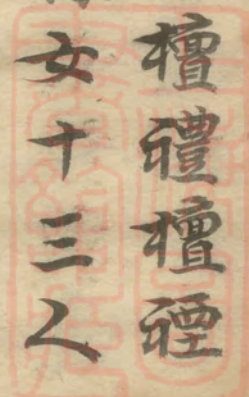 檀禮檀禋
女十三人